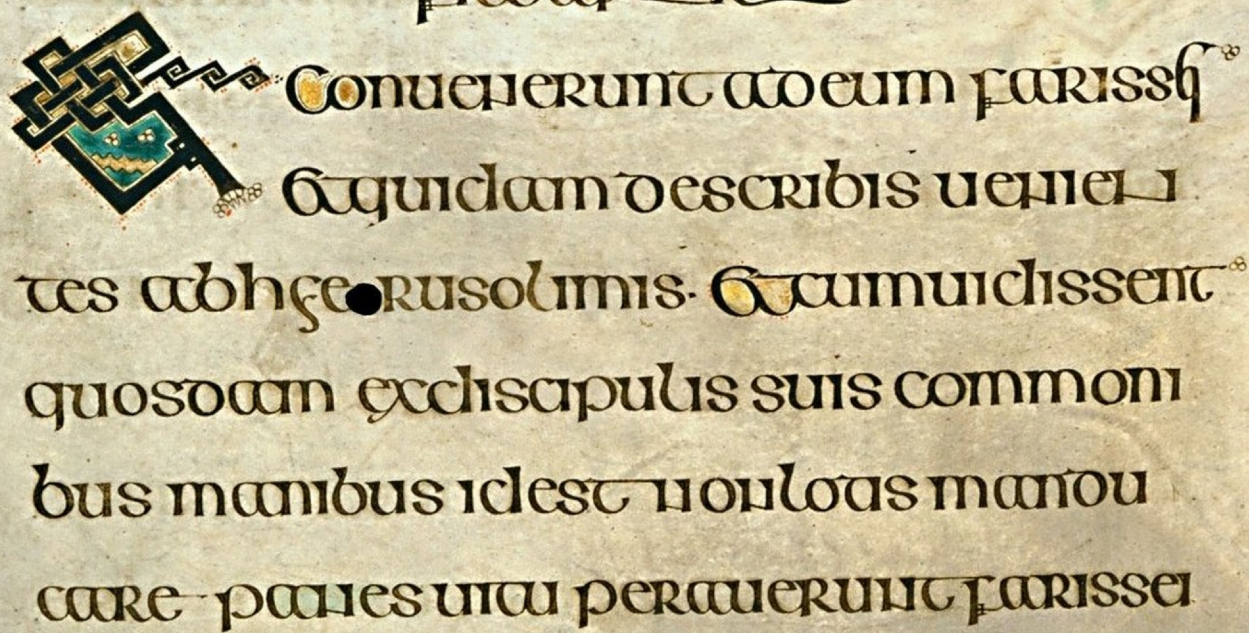 Et Conuenerunt ad eum farissei
Et quidam de scribis uenien
tes ab hierusolimis· Et cum uidissent
quosdam ex discipulis suis commoni
bus manibus id est non lotis mandu
care panes uitu perauerunt farissei